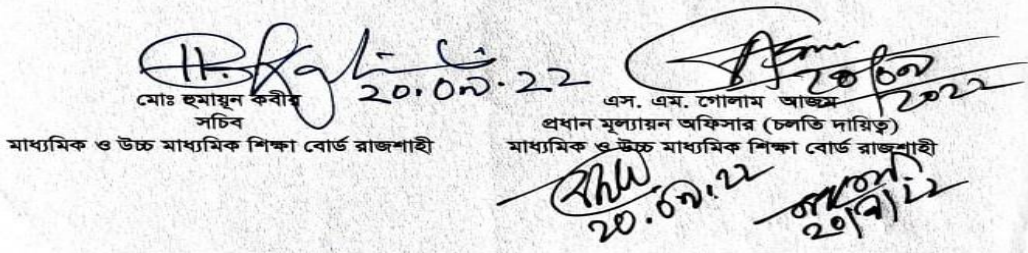 20.09.22
20/09/2022
মোঃ হুমায়ূন কবীর
সচিব
মাধ্যমিক ও উচ্চ মাধ্যমিক শিক্ষা বোর্ড রাজশাহী
এস. এম. গোলাম আজম
প্রধান মূল্যায়ন অফিসার (চলতি দায়িত্ব)
মাধ্যমিক ও উচ্চ মাধ্যমিক শিক্ষা বোর্ড রাজশাহী
20.09.22